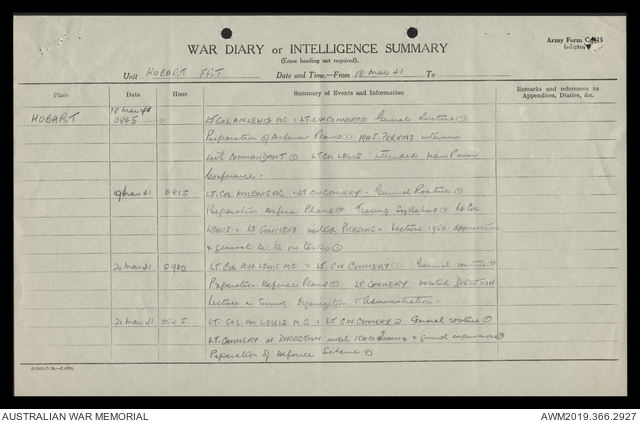 Army Form C
(adapted)
WAR DIARY or INTELLIGENCE SUMMARY
(Erase heading not required).
Unit HOBART FRT Date and Time.—From 18 Mar 41 To
Place Date Hour Summary of Events and Information Remarks and references to Appendices, Diaries, &c.
HOBART 18 Mar 41 0845 LT COL A.H. LEWIS M.C. & LT. C.W. CONNERY General Routine
Preparation of Defence Plans MAJ. PERKINS interview
with COMMANDANT LT COL LEWIS attended Man Power
Conference.
19 Mar 41 0815 LT. COL. A.H. LEWIS M.C. & LT CW CONNERY. General Routine
Preparation Defence Plans Training Syllabus Lt Col
LEWIS & Lt CONNERY visited Lecture 1930
& general talk on
20 Mar 41 0900 LT COL A.H. LEWIS M.C. & LT C.W. CONNERY General routine
Preparation Defence Plans LT CONNERY visited DIRECTION
Lecture Organisation & Administration.
Mar 41 LT. COL. A.H. LEWIS M.C. & LT C.W. CONNERY General routine
LT. CONNERY at DIRECTION until 1500 & general supervision
Preparation of Defence Scheme
AUSTRALIAN WAR MEMORIAL AWM2019.366.2927